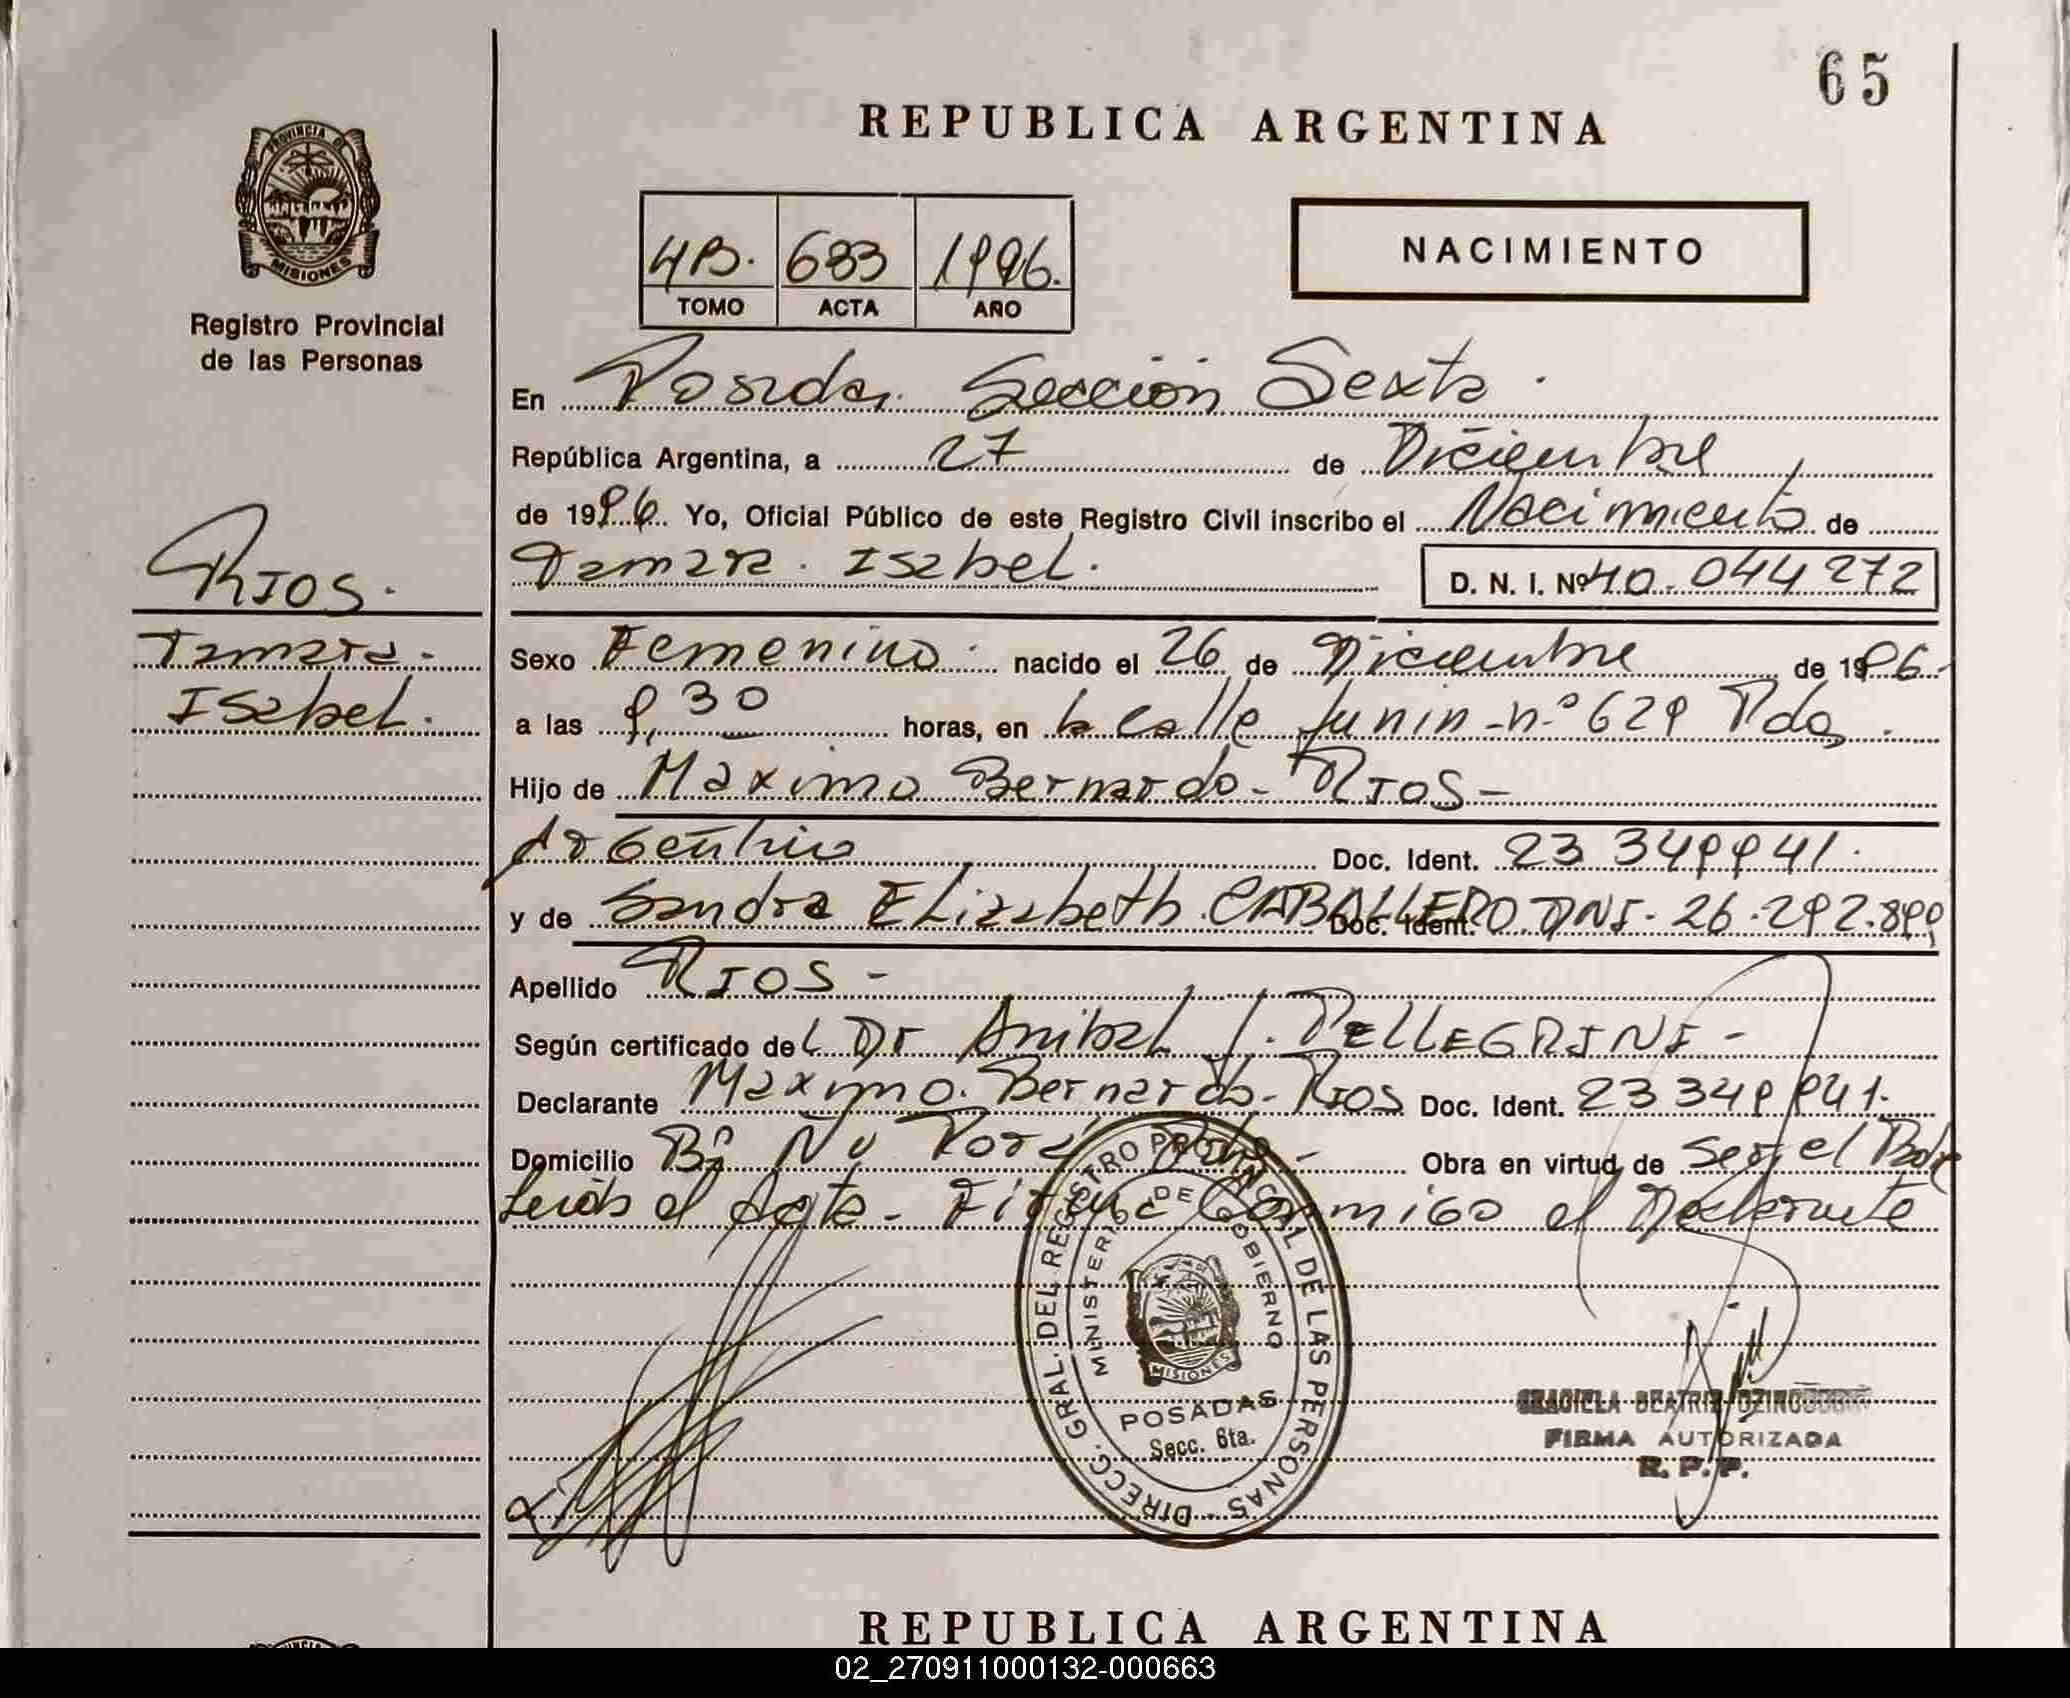 65
REPUBLICA ARGENTINA
PROVINCIA DE
MISIONES
Registro Provincial
de las Personas
4B. 683 1996.
TOMO ACTA AÑO
NACIMIENTO
En Posadas. Sección Sexta.
República Argentina, a 27 de Diciembre
de 1996. Yo, Oficial Público de este Registro Civil inscribo el Nacimiento de
Tamara. Isabel. D. N. I. Nº 40.044272
RIOS.
Tamara.
Isabel.
Sexo Femenino. nacido el 26 de Diciembre de 1996.
a las 9,30 horas, en la calle Junin - nº 629 Pdas.
Hijo de Maximo Bernardo - RIOS -
Argentino Doc. Ident. 23 349941.
y de Sandra Elizabeth CABALLERO DNI. 26.292.899 Doc. Ident.
Apellido RIOS -
Según certificado del Dr Anibal J. PELLEGRINI -
Declarante Maximo. Bernardo - Rios Doc. Ident. 23 349941.
Domicilio Bº Ñu Porá Pdas - Obra en virtud de ser el Pdre
Leída el Acta - Firma Conmigo el Declarante
DIRECC. GRAL. DEL REGISTRO PROVINCIAL DE LAS PERSONAS
MINISTERIO DE GOBIERNO
MISIONES
POSADAS
Secc. 6ta.
GRACIELA BEATRIZ
FIRMA AUTORIZADA
R. P. P.
REPUBLICA ARGENTINA
02_270911000132-000663